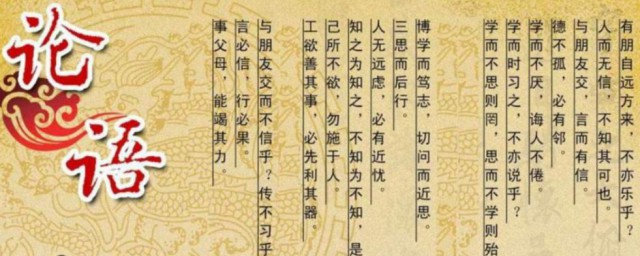 论语
有朋自远方来，不亦乐乎？
人而无信，不知其可也。
与朋友交，言而有信。
德不孤，必有邻。
学而不厌，诲人不倦。
学而时习之，不亦说乎？
学而不思则罔，思而不学则殆
博学而笃志，切问而近思。
三思而后行。
人无远虑，必有近忧。
知之为知之，不知为不知，是
己所不欲，勿施于人。
工欲善其事，必先利其器。
与朋友交而不信乎？传不习乎
言必信，行必果。
事父母，能竭其力。